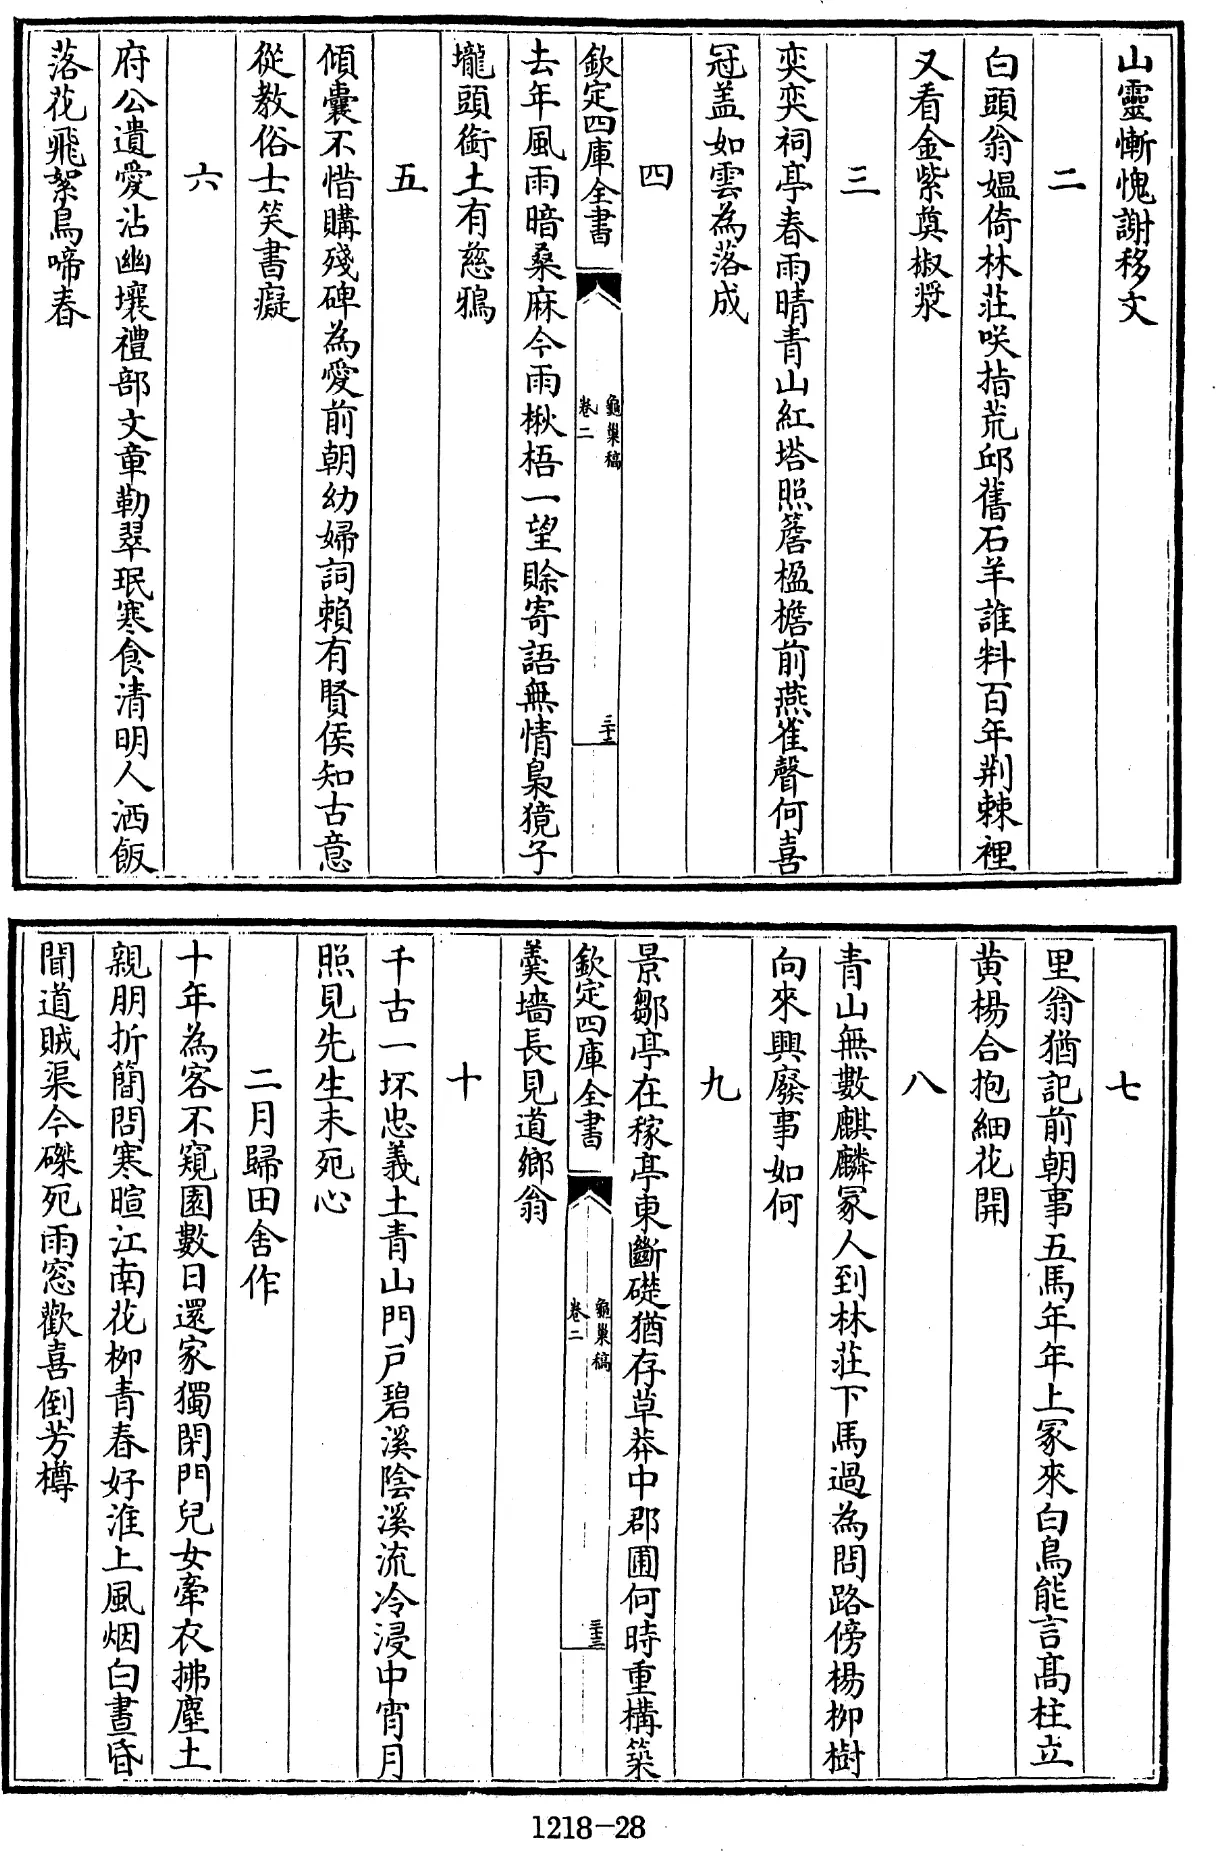 山靈慚愧謝移文
二
白頭翁媼倚林莊咲指荒邱舊石羊誰料百年荆棘裡
又看金紫奠椒漿
三
奕奕祠亭春雨晴青山紅塔照簷楹檐前燕雀聲何喜
冠盖如雲為落成
四
欽定四庫全書
龜巢稿
卷二
三十二
去年風雨暗桑麻今雨楸梧一望賒寄語無情梟獍子
壠頭銜土有慈鴉
五
傾囊不惜購殘碑為愛前朝幼婦詞賴有賢侯知古意
從教俗士笑書癡
六
府公遺愛沾幽壤禮部文章勒翠珉寒食清明人洒飯
落花飛絮鳥啼春
七
里翁猶記前朝事五馬年年上冢來白鳥能言高柱立
黄楊合抱細花開
八
青山無數麒麟冢人到林莊下馬過為問路傍楊柳樹
向來興廢事如何
九
景鄒亭在稼亭東斷礎猶存草莽中郡圃何時重構築
欽定四庫全書
龜巢稿
卷二
三十三
羮墻長見道鄉翁
十
千古一坏忠義土青山門戸碧溪陰溪流冷浸中宵月
照見先生未死心
二月歸田舍作
十年為客不窺園數日還家獨閉門兒女牽衣拂塵土
親朋折簡問寒暄江南花柳青春好淮上風烟白晝昏
聞道賊渠今磔死雨窓歡喜倒芳樽
1218-28